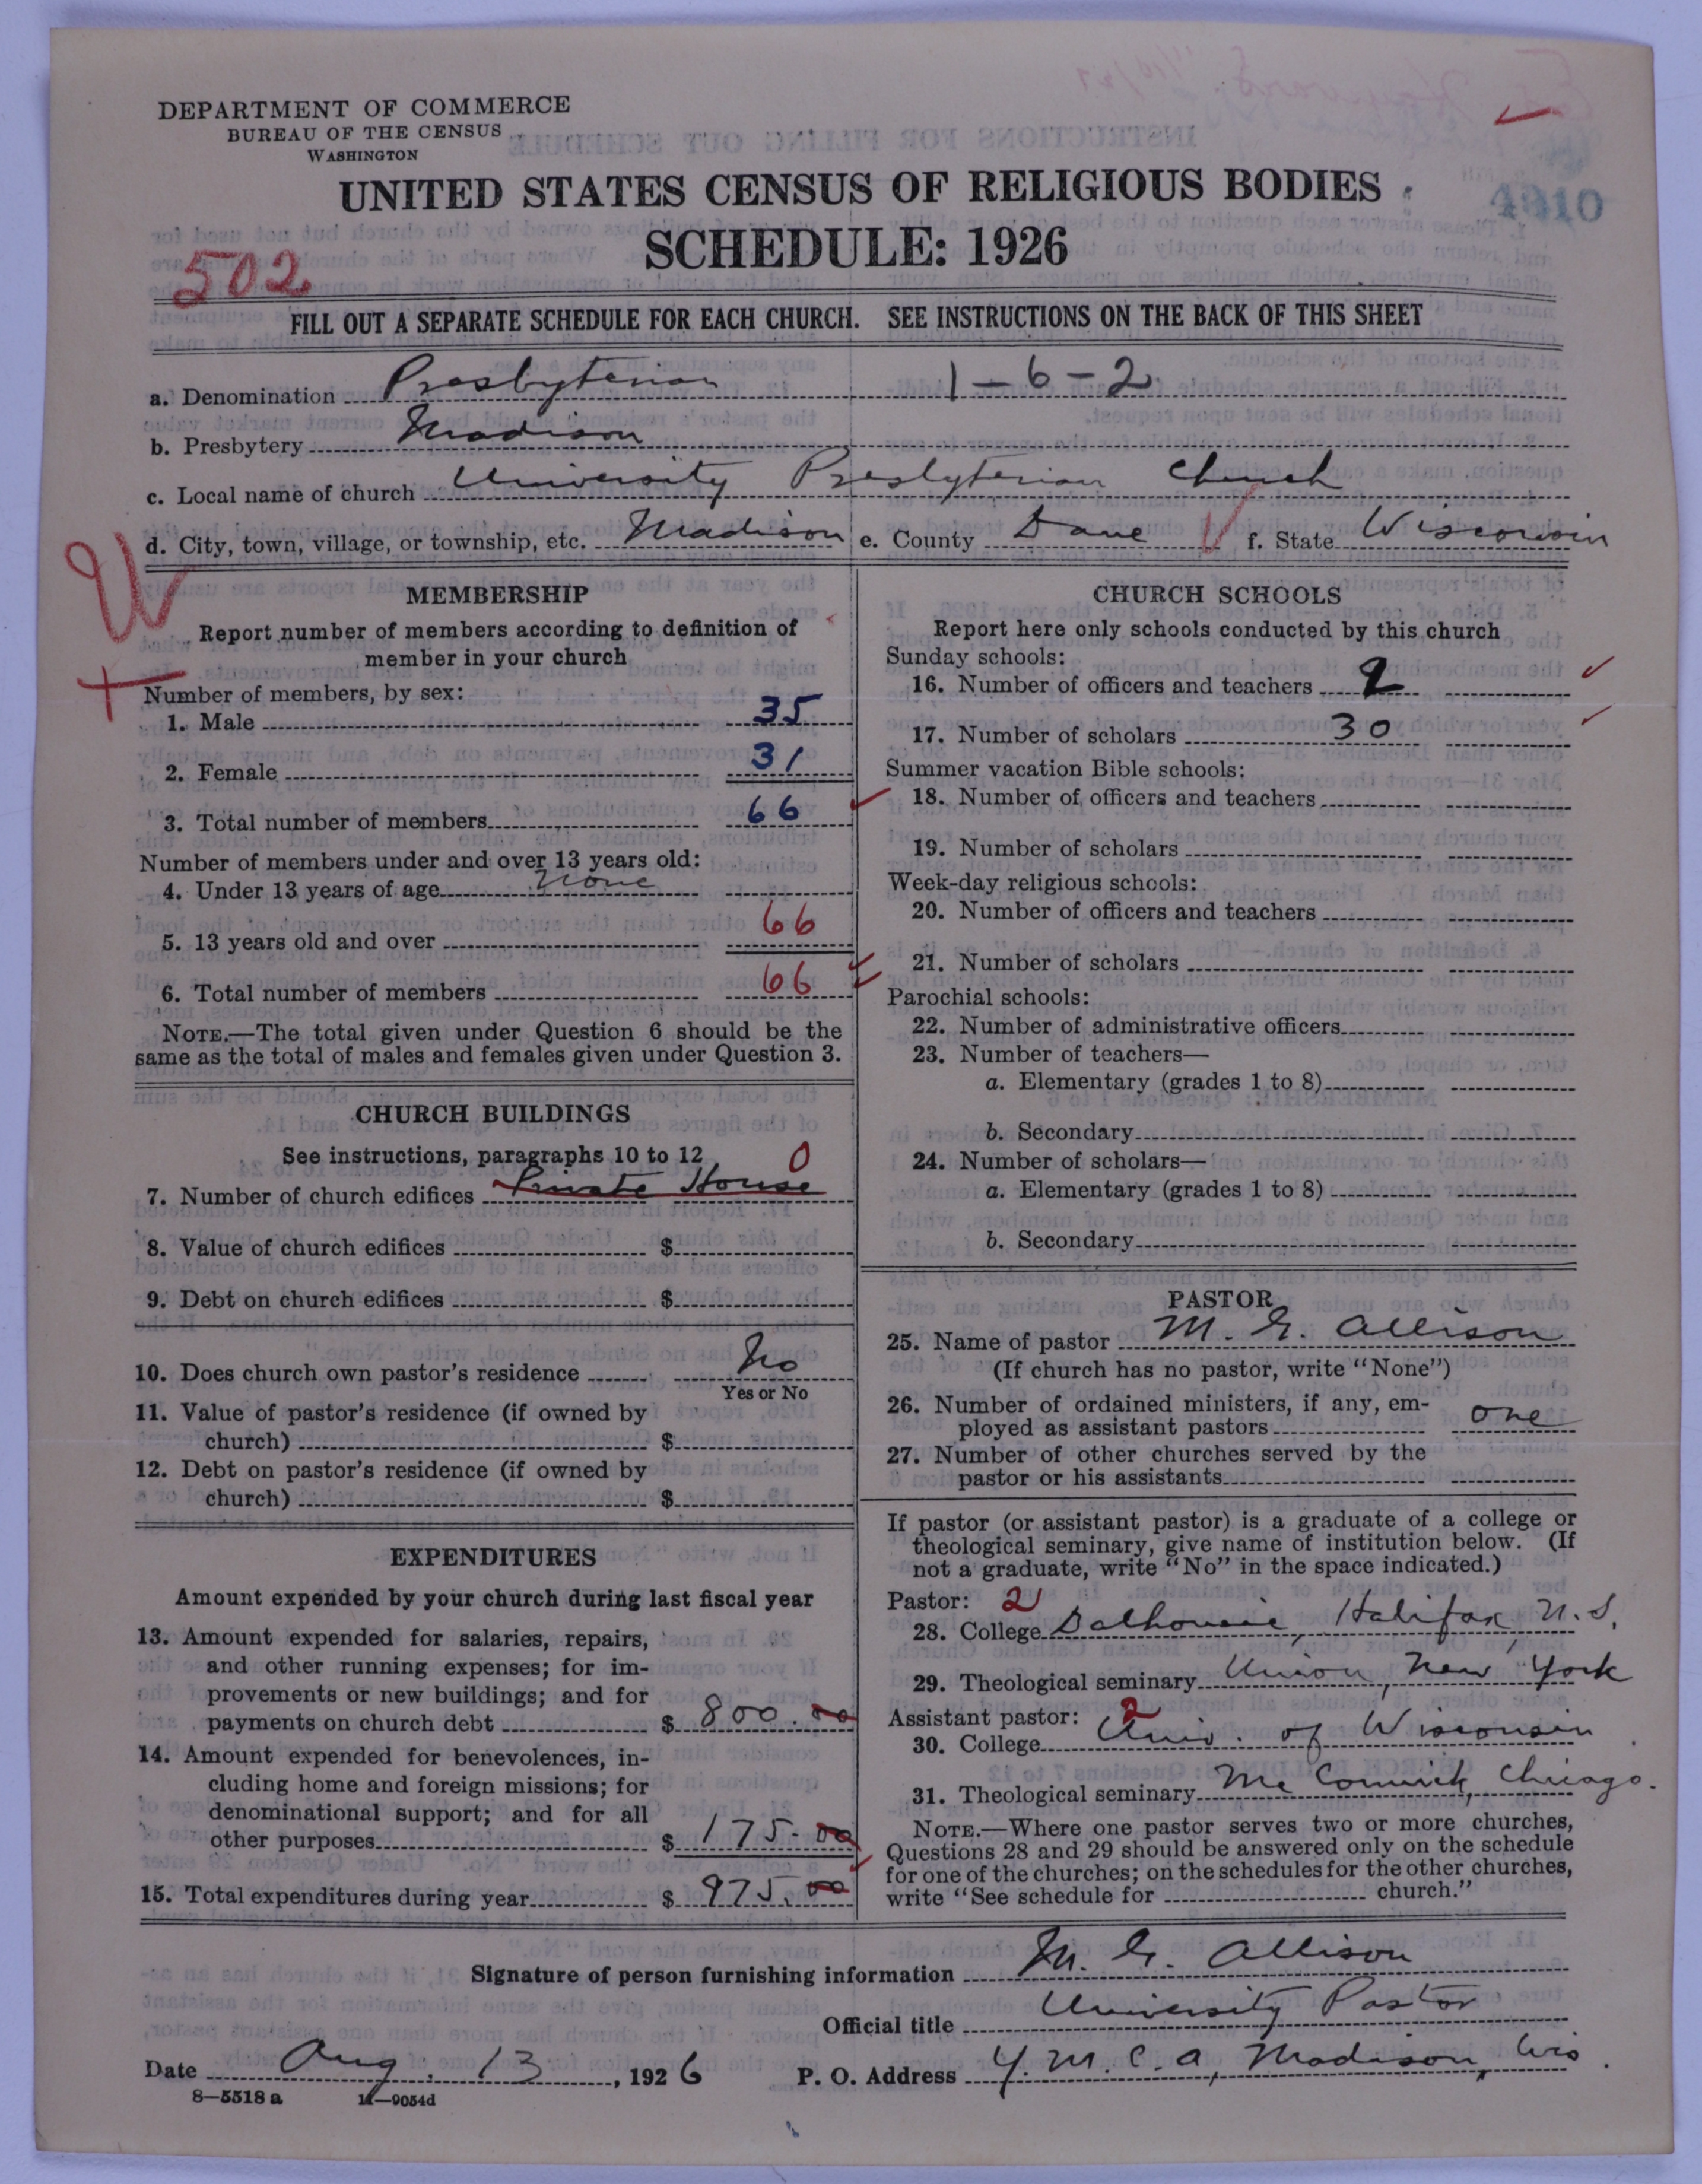 DEPARTMENT OF COMMERCE
BUREAU OF THE CENSUS
WASHINGTON
UNITED STATES CENSUS OF RELIGIOUS BODIES
SCHEDULE: 1926
502
FILL OUT A SEPARATE SCHEDULE FOR EACH CHURCH. SEE INSTRUCTIONS ON THE BACK OF THIS SHEET
a. Denomination Presbyterian 1-6-2
b. Presbytery Madison
c. Local name of church University Presbyterian Church
d. City, town, village, or township, etc. Madison e. County Dane f. State Wisconsin
MEMBERSHIP
Report number of members according to definition of
member in your church
Number of members, by sex:
1. Male 35
2. Female 31
3. Total number of members 66
Number of members under and over 13 years old:
4. Under 13 years of age None
5. 13 years old and over 66
6. Total number of members 66
NOTE.—The total given under Question 6 should be the
same as the total of males and females given under Question 3.
CHURCH BUILDINGS
See instructions, paragraphs 10 to 12
7. Number of church edifices Private House 0
8. Value of church edifices $
9. Debt on church edifices $
10. Does church own pastor's residence No
Yes or No
11. Value of pastor's residence (if owned by
church) $
12. Debt on pastor's residence (if owned by
church) $
EXPENDITURES
Amount expended by your church during last fiscal year
13. Amount expended for salaries, repairs,
and other running expenses; for im-
provements or new buildings; and for
payments on church debt $ 800.00
14. Amount expended for benevolences, in-
cluding home and foreign missions; for
denominational support; and for all
other purposes $ 175.00
15. Total expenditures during year $ 975.00
CHURCH SCHOOLS
Report here only schools conducted by this church
Sunday schools:
16. Number of officers and teachers
17. Number of scholars 30
Summer vacation Bible schools:
18. Number of officers and teachers
19. Number of scholars
Week-day religious schools:
20. Number of officers and teachers
21. Number of scholars
Parochial schools:
22. Number of administrative officers
23. Number of teachers—
a. Elementary (grades 1 to 8)
b. Secondary
24. Number of scholars—
a. Elementary (grades 1 to 8)
b. Secondary
PASTOR
25. Name of pastor M. G. Allison
(If church has no pastor, write "None")
26. Number of ordained ministers, if any, em-
ployed as assistant pastors one
27. Number of other churches served by the
pastor or his assistants
If pastor (or assistant pastor) is a graduate of a college or
theological seminary, give name of institution below. (If
not a graduate, write "No" in the space indicated.)
Pastor: 2
28. College Dalhousie, Halifax, N.S.
29. Theological seminary Union, New York
Assistant pastor: 2
30. College Univ. of Wisconsin
31. Theological seminary McCormick, Chicago.
NOTE.—Where one pastor serves two or more churches,
Questions 28 and 29 should be answered only on the schedule
for one of the churches; on the schedules for the other churches,
write "See schedule for church."
Signature of person furnishing information M. G. Allison
Official title University Pastor
Date Aug. 13, 1926 P. O. Address Y.M.C.A, Madison, Wis.
8—5518 a 11—9054d